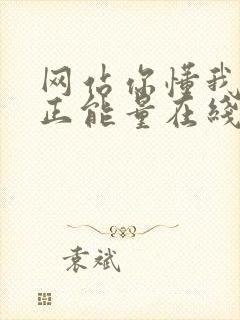 网站你懂我
正能量在线
袁斌